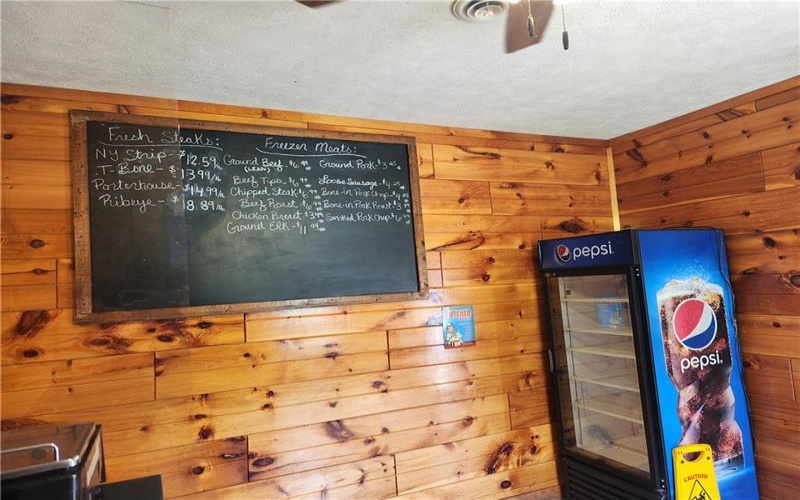 Fresh Steaks:
NY Strip - $12.59/lb
T-Bone - $13.99/lb
Porterhouse - $14.99/lb
Ribeye - $18.89/lb
Freezer Meats:
Ground Beef - $6.99
(LEAN)
Beef Tips - $6.99
Chipped Steak - $6.99
Beef Roast - $6.99
Chicken Breast $3.99
Ground Elk - $11.99
Ground Pork $3
Loose Sausage - $4
Bone-in Pork Chop - $4
Bone-in Pork Roast $3
Smoked Pork Chop - $6
pepsi
pepsi
CAUTION